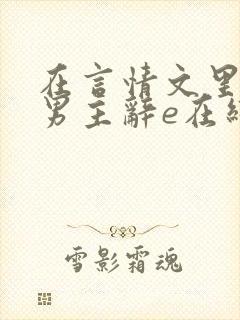 在言情文里
男主辞e在线
雪影霜魂